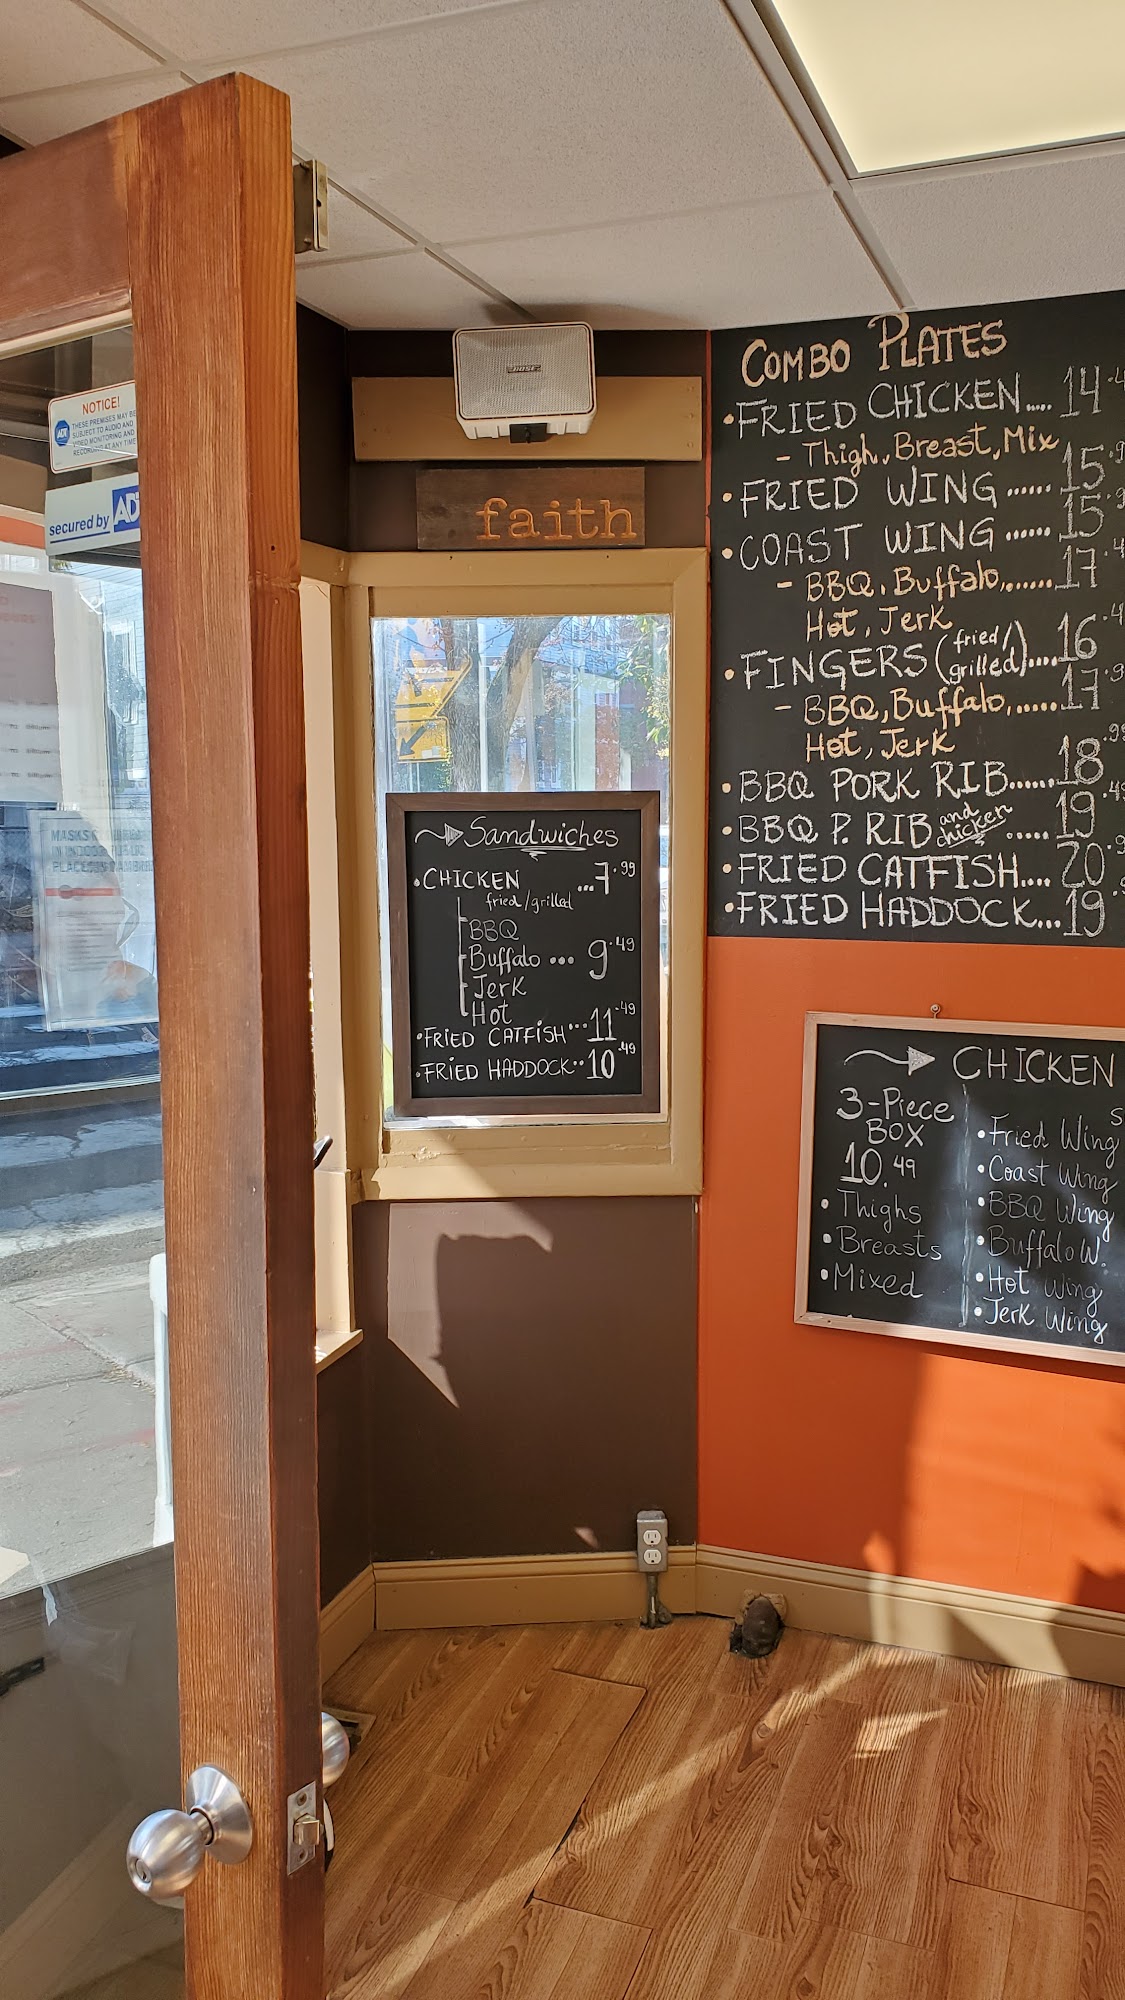 NOTICE!
THESE PREMISES MAY BE
SUBJECT TO AUDIO AND
VIDEO MONITORING AND
RECORDING AT ANY TIME
ADT
secured by ADT
MASKS
IN INDOOR
BOSE
faith
Sandwiches
•CHICKEN ...7.99
fried/grilled
BBQ
Buffalo ... 9.49
Jerk
Hot
•FRIED CATFISH...11.49
•FRIED HADDOCK..10.49
COMBO PLATES
•FRIED CHICKEN.... 14.4
- Thigh, Breast, Mix
•FRIED WING ...... 15.9
•COAST WING ...... 15.9
- BBQ, Buffalo,...... 17.4
Hot, Jerk
•FINGERS (fried/grilled)....16.4
- BBQ, Buffalo, ..... 17.9
Hot, Jerk
•BBQ PORK RIB.....18.99
•BBQ P. RIB and chicken .... 19.49
•FRIED CATFISH.... 20.9
•FRIED HADDOCK...19.
CHICKEN
3-Piece
BOX
10.49
•Thighs
•Breasts
•Mixed
S
•Fried Wing
•Coast Wing
•BBQ Wing
•Buffalo W.
•Hot Wing
•Jerk Wing